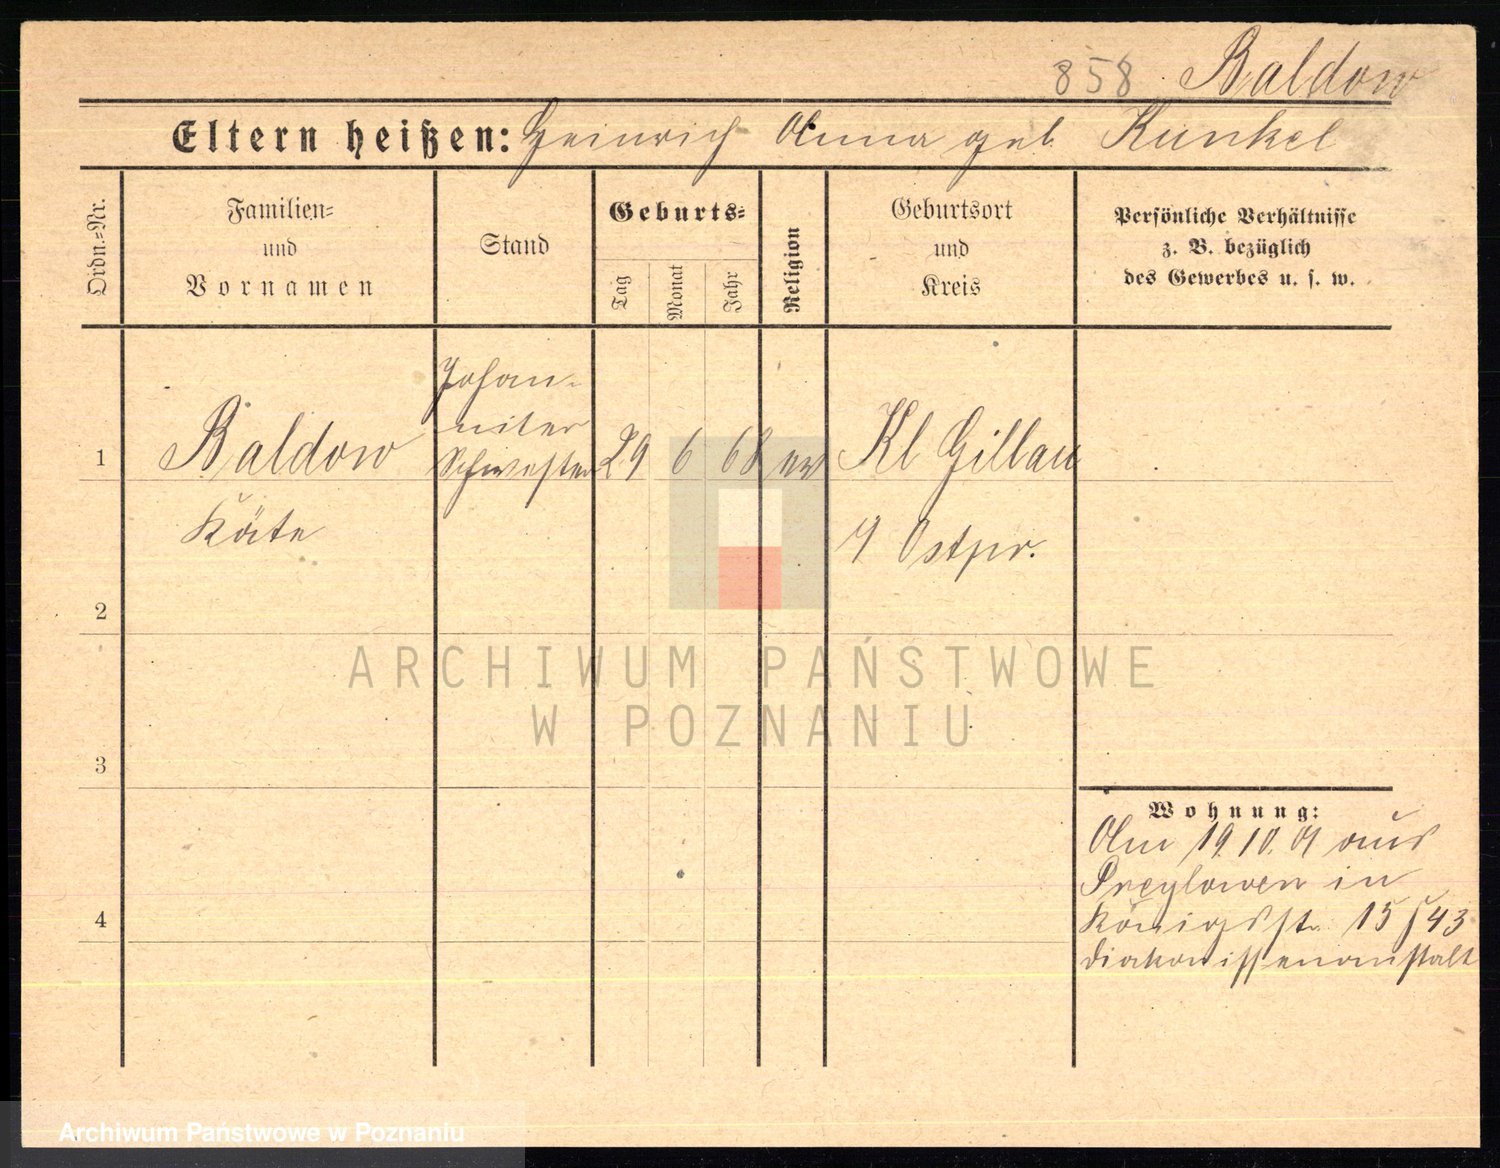 858 Baldow
Eltern heißen: Heinrich Anna geb. Kunkel
Ordn.-Nr.
Familien-
und
Vornamen
Stand
Geburts-
Tag
Monat
Jahr
Religion
Geburtsort
und
Kreis
Persönliche Verhältnisse
z. B. bezüglich
des Gewerbes u. s. w.
Johan-
niter
Schwester
1 Baldow 29 6 68 ev Kl Gillau
Käte
Ostpr.
2
ARCHIWUM PAŃSTWOWE
W POZNANIU
3
Wohnung:
Am 19.10.01 aus
Preylowen in
4 Königsstr. 15 / 43
Diakonissenanstalt
Archiwum Państwowe w Poznaniu